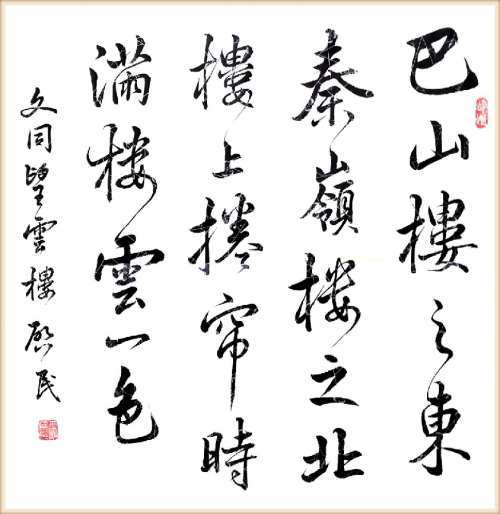 巴山樓之東
秦嶺樓之北
樓上捲帘時
滿楼雲一色
文同望雲樓 啟民